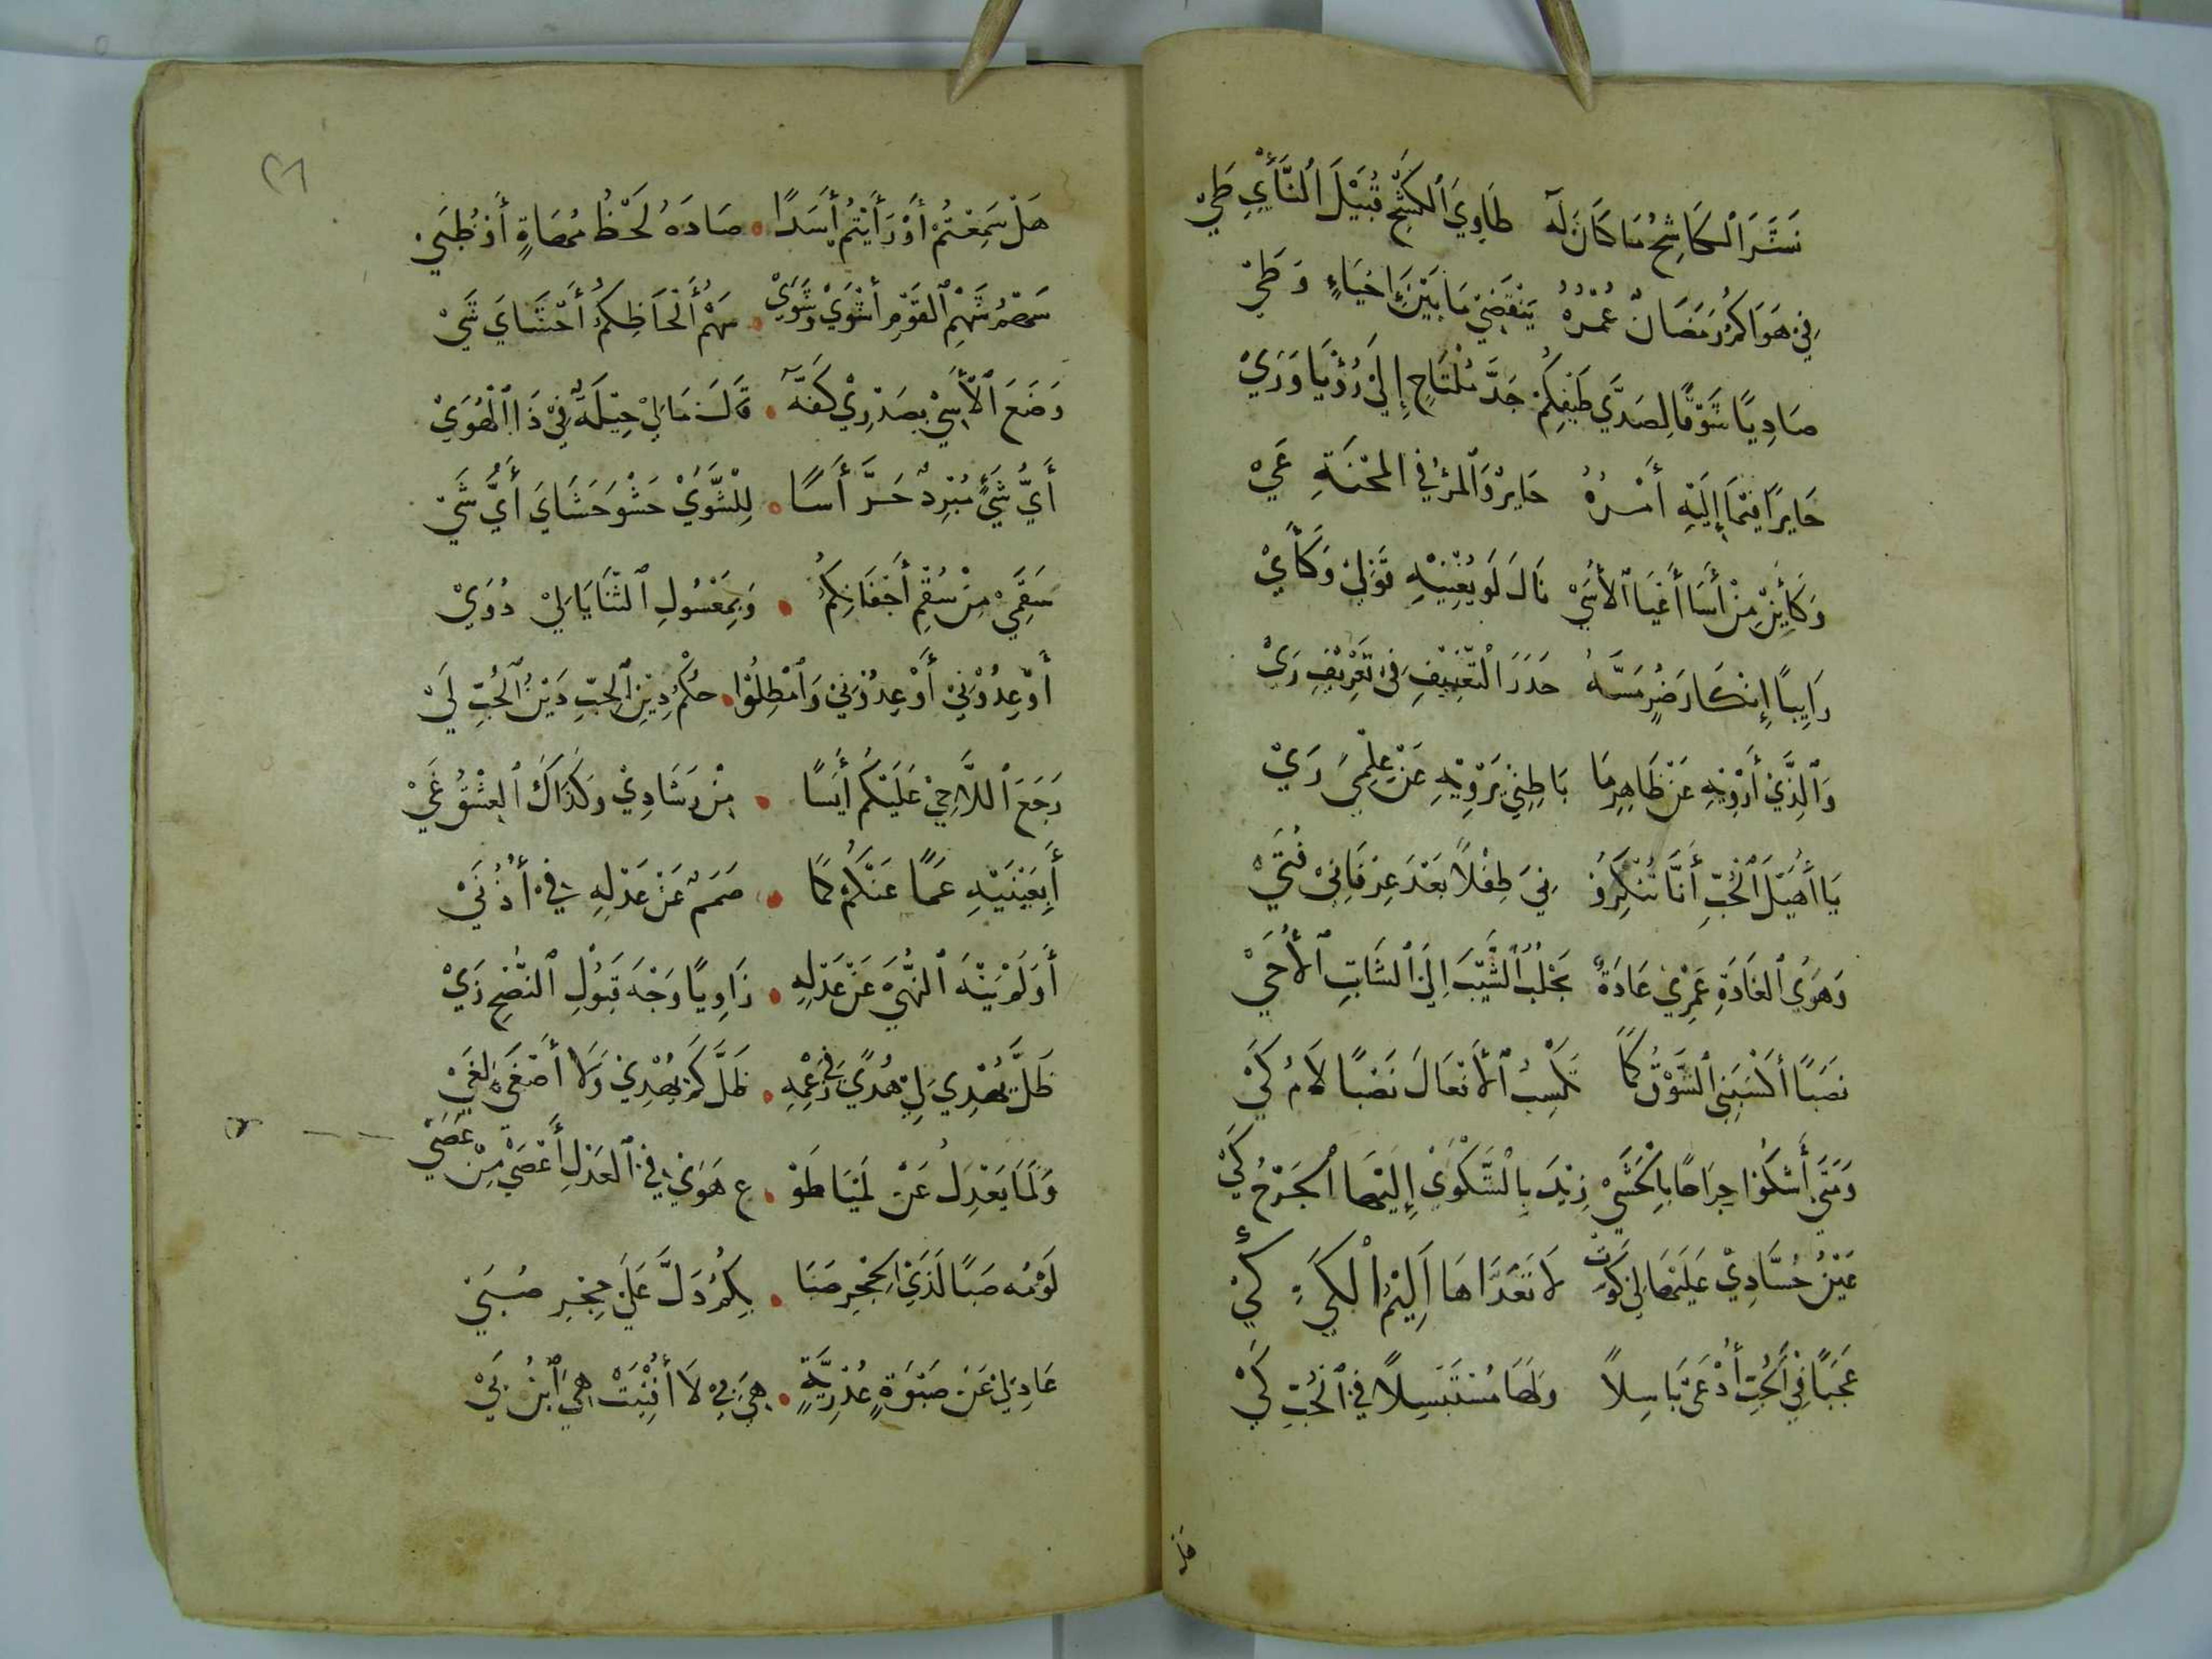 نَشَرَ ٱلْكَاشِحُ مَا كَانَ لَهُ طَاوِيَ ٱلْكَشْحِ قُبَيْلَ ٱلنَّأْيِ طَيّ
فِي هَوَاكُمْ رَمَضَانٌ عُمْرُهُ يَنْقَضِي مَا بَيْنَ إِحْيَاءٍ وَطَيّ
صَادِيًا شَوْقًا لِصَدَّي طَيْفِكُمْ جَدَّ مُلْتَاحٍ إِلَىٰ رُؤْيَا وَرَيْ
حَايِرًا فِيمَا إِلَيْهِ أَمْرُهُ حَايِرٌ وَٱلْمَرْءُ فِي المِحْنَةِ عَيْ
وَكَأَيِّنْ مِنْ أَسًا أَعْيَا ٱلْأُسَىْ نَالَ لَوْ يُغْنِيْهِ قَوْلِيْ وَكَأَيْ
رَايِيًا إِنكَارَ ضُرٍّ مَسَّهُ حَذَرَ التَّعْنِيْفِ فِيْ تَعْرِيْفِ رَيْ
وَٱلَّذِيْ أَرْوِيْهِ عَنْ ظَاهِرِ مَا بَاطِنِيْ يَزْوِيْهِ عَنْ عِلْمِيَ زَيْ
يَا أُهَيْلَ ٱلْحُبِّ أَنَّا تُنْكِرُوْ نِيَ طِفْلًا بَعْدَ عِرْفَانِيْ فُتَيْ
وَهَوَى ٱلْغَادَةِ عَمْرِيْ عَادَةٌ يَجْلُبُ ٱلشَّيْبَ إِلَى ٱلشَّابِ ٱلْأُحَيْ
نَصَبًا أَكْسَبَنِي ٱلشَّوْقُ كَمَا تَكْسِبُ ٱلْأَفْعَالَ نَصْبًا لَامُ كَيْ
وَمَتَىٰ أَشْكُوْا جِرَاحًا بِالْحَشَىْ زِيْدَ بِالشَّكْوَىْ إِلَيْهَا الْجَرْحُ كَيْ
عَيْنُ حُسَّادِيْ عَلَيْهَا لِي كَوَتْ لَا تَعَدَّاهَا أَلِيْمُ الْكَيِّ كَيْ
عَجَبًا فِي ٱلْحُبِّ أُدْعَىٰ بَاسِلًا وَلَهَا مُسْتَبْسِلًا فِي ٱلْحُبِّ كَيْ
هل
٢٦
هَلْ سَمِعْتُمْ أَوْ رَأَيْتُمْ أَسَدًا صَادَهُ لَحْظُ مَهَاةٍ أَوْ ظُبَيْ
سَهْمُ شَهْمِ ٱلْقَوْمِ أَشْوَىْ وَشَوَىْ سَهْمُ أَلْحَاظِكُمُ أَحْشَايَ شَيْ
وَضَعَ ٱلْأُسِيْ بِصَدْرِيْ كَفَّهُ قَالَ مَا لِيْ حِيْلَةٌ فِيْ ذَا ٱلْهُوَيْ
أَيُّ شَيْءٍ مُبْرِدٌ حَرَّ أَسًا لِلشَّوَيْ حَشْوَ حَشَايَ أَيُّ شَيْ
سَقَمِيْ مِنْ سُقْمِ أَجْفَانِكُمُ وَبِمَعْسُولِ ٱلثَّنَايَا لِيْ دُوَيْ
أَوْعِدُوْنِيْ أَوْ عِدُوْنِيْ وَٱمْطِلُوْا حُكْمُ دِيْنِ ٱلْحُبِّ دَيْنُ ٱلْحُبِّ لَيْ
رَجَعَ ٱللَّاحِيْ عَلَيْكُمْ أَيِسًا مِنْ رَشَادِيْ وَكَذَاكَ ٱلْعِشْقُ غَيْ
أَبِعَيْنَيْهِ عَمًا عَنْكُمْ كَمَا صَمَمٌ عَنْ عَذْلِهِ فِيْ أُذُنَيْ
أَوَلَمْ يَنْهَ ٱلنُّهَىْ عَنْ عَذْلِهِ زَاوِيًا وَجْهَ قَبُوْلِ ٱلنُّصْحِ زَيْ
ظَلَّ يُهْدِيْ لِيْ هُدًى فِيْ زَعْمِهِ ظَلَّ كَمْ يَهْذِيْ وَلَا أَصْغَىْ لِغَيْ
وَلِمَا يَعْذِلُ عَنْ لَمْيَا طَوْ عَ هَوَىْ فِي ٱلْعَذْلِ أَعْصَىْ مِنْ عُصَيْ
لَوْمُهُ صَبًّا لَدَىْ الْحِجْرِ صَبَا بِكُمُ دَلَّ عَلَىْ حِجْرِ صُبَيْ
عَاذِلِيْ عَنْ صَبْوَةٍ عُذْرِيَّةٍ هِيَ بِيْ لَا أُفْتِئَتْ هِيَ ٱبْنُ بَيْ